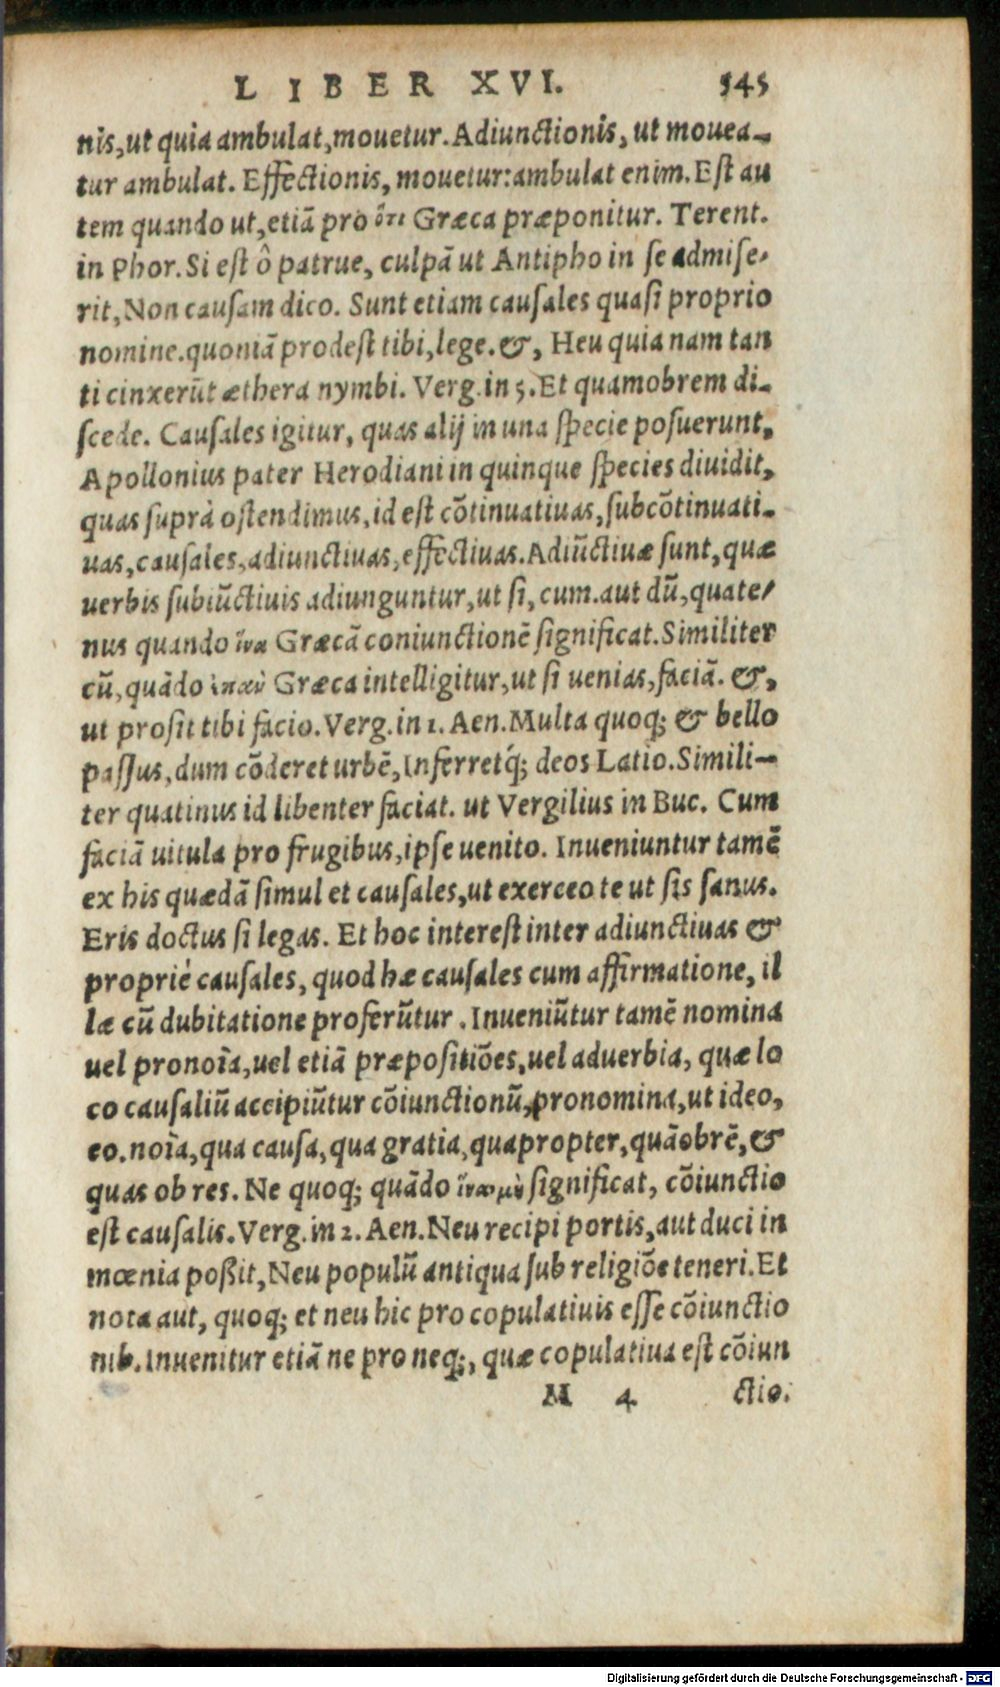 LIBER XVI. 545
nis, ut quia ambulat, mouetur. Adiunctionis, ut mouea-
tur ambulat. Effectionis, mouetur: ambulat enim. Est au
tem quando ut, etiã pro ὅτι Græca præponitur. Terent.
in Phor. Si est ô patrue, culpã ut Antipho in se admise-
rit, Non causam dico. Sunt etiam causales quasi proprio
nomine. quoniã prodest tibi, lege. &, Heu quia nam tan
ti cinxerũt æthera nymbi. Verg. in 5. Et quamobrem di-
scede. Causales igitur, quas alij in una specie posuerunt,
Apollonius pater Herodiani in quinque species diuidit,
quas suprà ostendimus, id est cõtinuatiuas, subcõtinuati-
uas, causales, adiunctiuas, effectiuas. Adiũctiuæ sunt, quæ
uerbis subiũctiuis adiunguntur, ut si, cum. aut dũ, quate-
nus quando ἵνα Græcã coniunctionẽ significat. Similiter
cũ, quãdo ἐπαν Græca intelligitur, ut si uenias, faciã. &,
ut prosit tibi facio. Verg. in 1. Aen. Multa quoq; & bello
passus, dum cõderet urbẽ, Inferretq́; deos Latio. Simili-
ter quatinus id libenter faciat. ut Vergilius in Buc. Cum
faciã uitula pro frugibus, ipse uenito. Inueniuntur tamẽ
ex his quædã simul et causales, ut exerceo te ut sis sanus.
Eris doctus si legas. Et hoc interest inter adiunctiuas &
propriè causales, quod hæ causales cum affirmatione, il
læ cũ dubitatione proferũtur. Inueniũtur tamẽ nomina
uel pronoĩa, uel etiã præpositiões, uel aduerbia, quæ lo
co causaliũ accipiũtur cõiunctionũ, pronomina, ut ideo,
eo. noĩa, qua causa, qua gratia, quapropter, quãobrẽ, &
quas ob res. Ne quoq; quãdo ἵνα μὴ significat, cõiunctio
est causalis. Verg. in 2. Aen. Neu recipi portis, aut duci in
mœnia poßit, Neu populũ antiqua sub religiõe teneri. Et
nota aut, quoq; et neu hic pro copulatiuis esse cõiunctio
nib. Inuenitur etiã ne pro neq;, quæ copulatiua est cõiun
M 4 ctio.
Digitalisierung gefördert durch die Deutsche Forschungsgemeinschaft - DFG